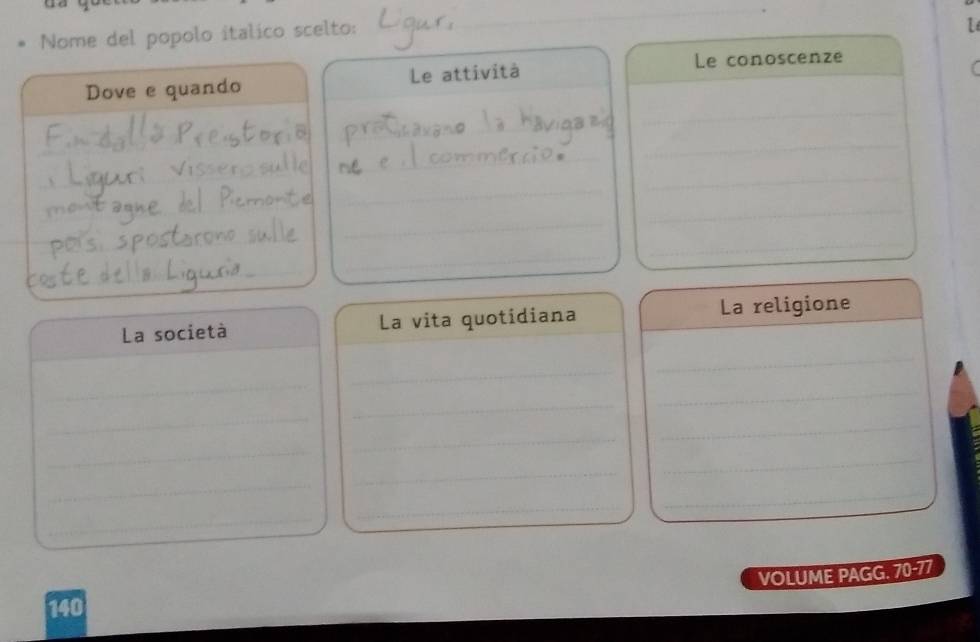 • Nome del popolo italico scelto: Liguri
Dove e quando
Fin dalla Preistoria
i Liguri vissero sulle
montagne del Piemonte
poi si spostarono sulle
coste della Liguria
Le attività
praticavano la navigazio
ne e il commercio.
Le conoscenze
La società
La vita quotidiana
La religione
VOLUME PAGG. 70-77
140